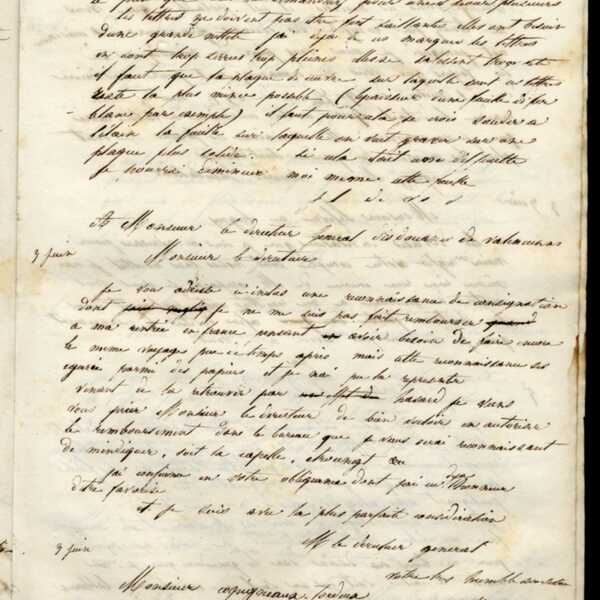 les lettres ne doivent pas être fort saillantes elles ont besoin
d'une grande netteté j'ai déjà vu vos marques les lettres
en sont trop serrés trop pleines
il faut que la plaque de cuivre sur laquelle sont vos lettres
reste la plus mince possible (épaisseur d'une feuille de fer
blanc par exemple) il faut pour cela je crois souder a
l'étain la feuille sur laquelle on doit graver sur une
plaque plus solide. Si cela fait une difficulté
je pourrai moi meme cette feuille
A Monsieur le directeur General des douanes de Valenciennes
9 juin Monsieur le directeur
je vous adresse ci-inclus une reconnaissance de consignation
dont je ne me suis pas fait rembourser
a ma rentrée en france pensant avoir besoin de faire encore
le meme voyage peu de temps après mais cette reconnaissance s'est
égarée parmi des papiers et je n'ai pu la représenter
venant de la retrouver par hasard je viens
vous prier Monsieur le directeur de bien vouloir en autoriser
le remboursement dans le bureau que je vous serai reconnaissant
de m'indiquer, soit la capelle, etroungt ou
j'ai confiance en votre obligeance dont j'ai eu déjà l'honneur
d'être favorisé
et je suis avec la plus parfaite considération
M le directeur general
votre très humble serviteur
9 juin
Monsieur